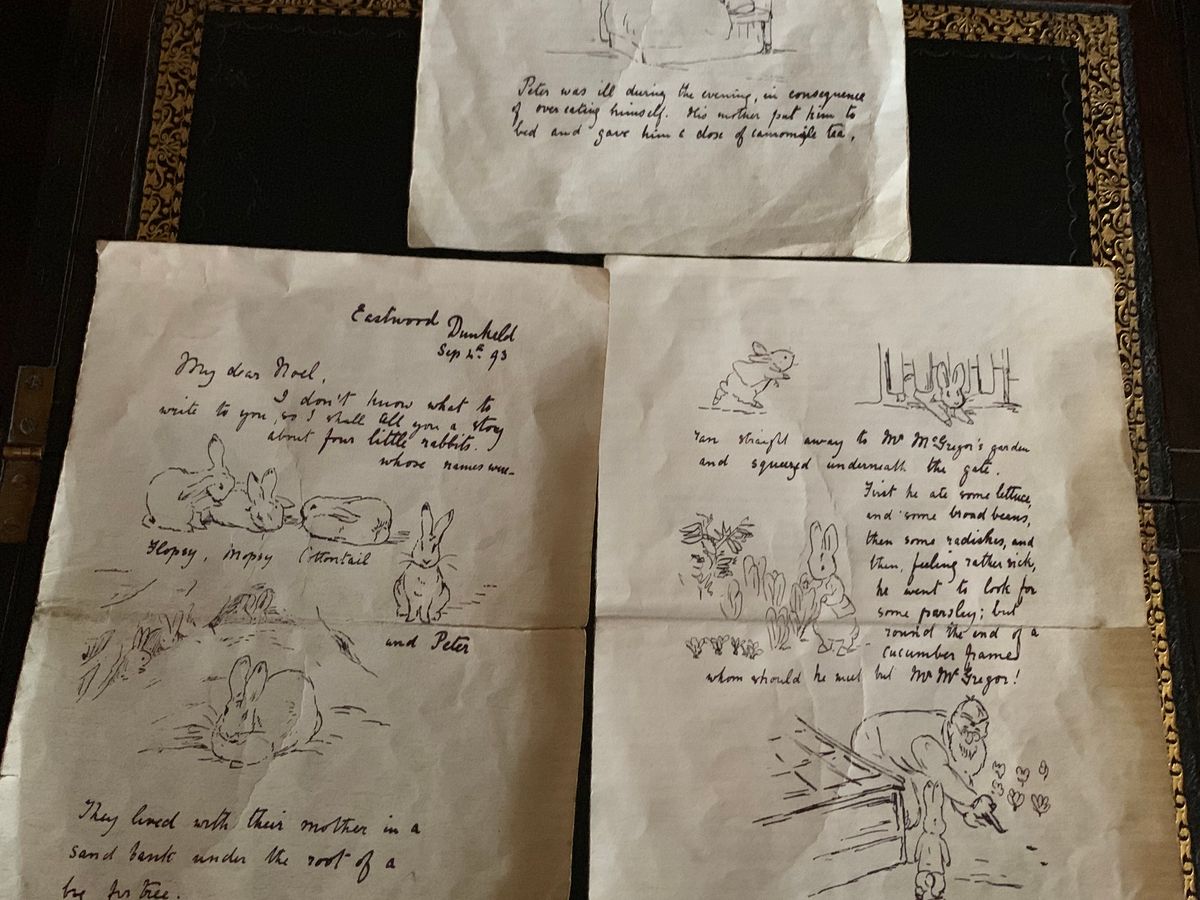 Peter was ill during the evening, in consequence
of over eating himself. His mother put him to
bed and gave him a dose of camomile tea,
Eastwood Dunkeld
Sep 4th 93
My dear Noel,
I don't know what to
write to you, so I shall tell you a story
about four little rabbits.
whose names were
Flopsy, Mopsy Cottontail
and Peter
They lived with their mother in a
sand bank under the root of a
big fir tree.
ran straight away to Mr McGregor's garden
and squeezed underneath the gate.
First he ate some lettuce,
and some broad beans,
then some radishes, and
then, feeling rather sick,
he went to look for
some parsley; but
round the end of a
cucumber frame
whom should he meet but Mr McGregor!